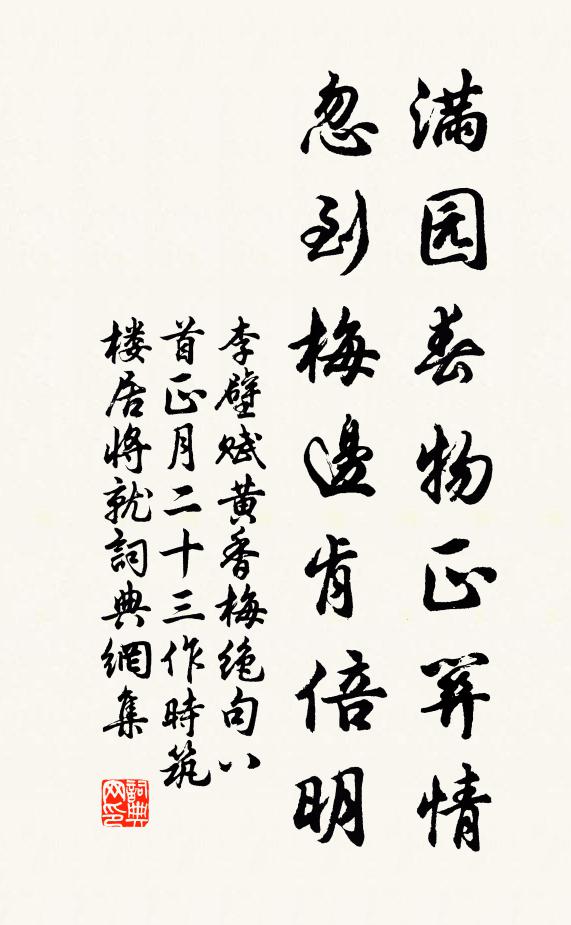 满园春物正関情
忽到梅邊肯倍明
李壁赋黄香梅绝句八
首正月二十三作時筑
楼居将就詞典網集
詞典网印